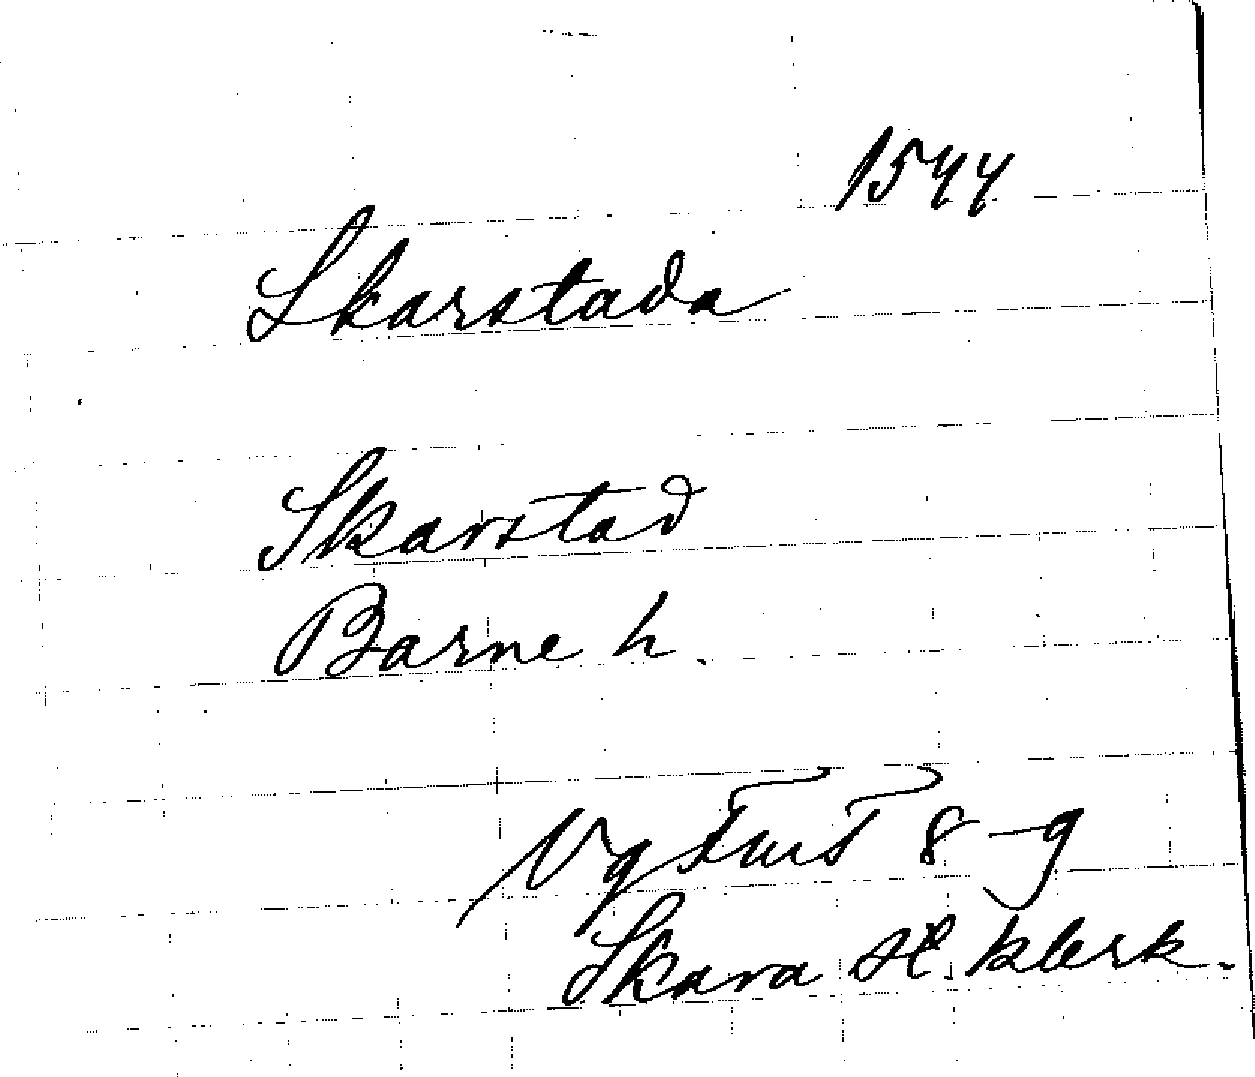 1544
Skarstada
Skarstad
Barne h.
Vg 8-9
Skara st. klerk.